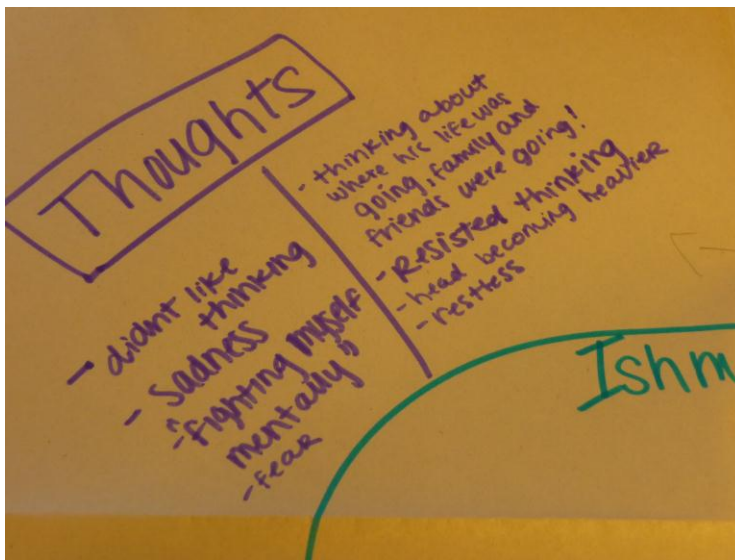 Thoughts
- didnt like
thinking
- Sadness
- "fighting myself
mentally"
- fear
- thinking about
where his life was
going, family and
friends were going!
- Resisted thinking
- head becoming heavier
- restless
Ishm